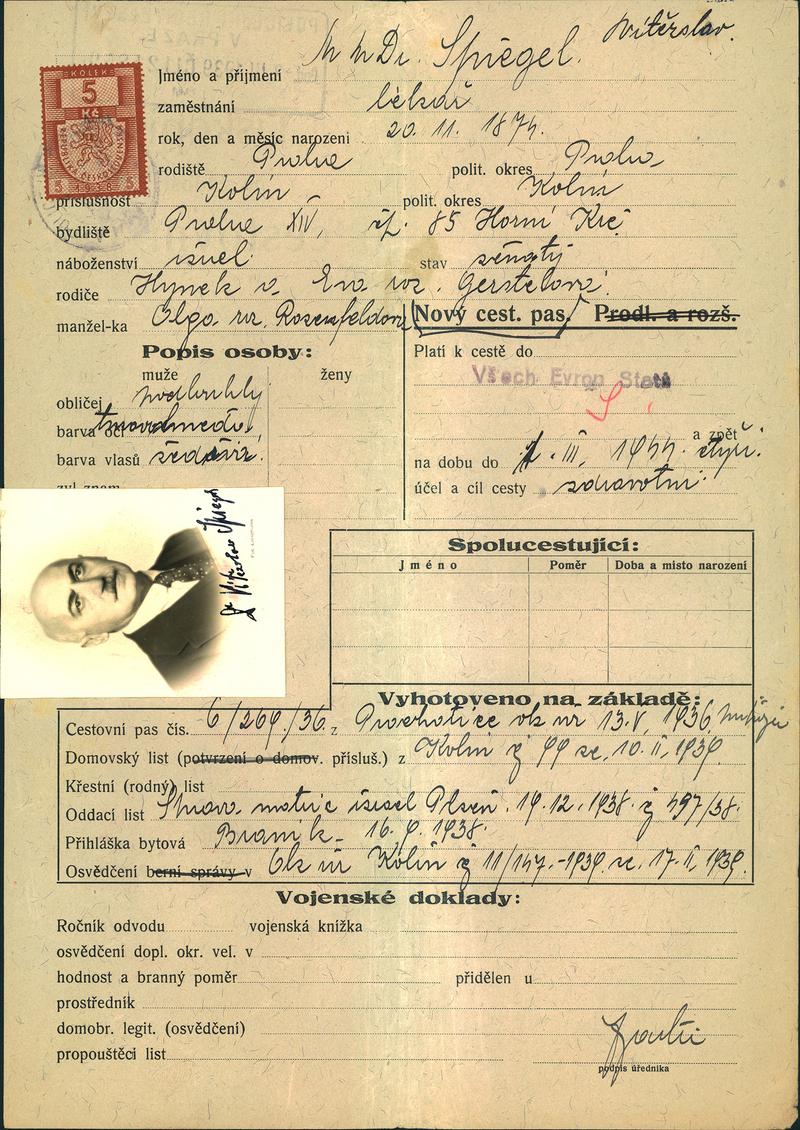 MUDr. Spiegel Vítězslav.
Jméno a přijmení
KOLEK
5
Kč
REPUBLIKA ČESKOSLOVENSKÁ
5 1938 5
zaměstnání lékař
rok, den a měsíc narození 20. 11. 1874.
rodiště Praha polit. okres Praha
příslušnost Kolín polit. okres Kolín
bydliště Praha XIV, čp. 85 Horní Krč
náboženství israel. stav ženatý
rodiče Hynek a Eva roz. Gerstelová
manžel-ka Olga roz. Rosenfeldová
Nový cest. pas. Prodl. a rozš.
Popis osoby:
muže ženy
obličej podlouhlý
barva očí tmavohnědé
barva vlasů šedivá
zvl. znam.
Platí k cestě do
Všech Evrop Států
a zpět
na dobu do 1. III. 1944. čtyři.
účel a cíl cesty zdravotní
Dr Vítězslav Spiegel
Spolucestující:
Jméno Poměr Doba a místo narození
Vyhotoveno na základě:
Cestovní pas čís. 6/269/36. z Prachatice ok. úř 13. V. 1936
Domovský list (potvrzení o domov. přísluš.) z Kolín č 99 ze 10. II. 1939.
Křestní (rodný) list
Oddací list Správa matric israel Plzeň. 19. 12. 1938. č 497/38.
Přihláška bytová Braník 16. 9. 1938.
Osvědčení berní správy v Ok úř Kolín č 11/147.-1939 ze 17. II. 1939.
Vojenské doklady:
Ročník odvodu vojenská knížka
osvědčení dopl. okr. vel. v
hodnost a branný poměr přidělen u
prostředník
domobr. legit. (osvědčení)
propouštěcí list
podpis úředníka